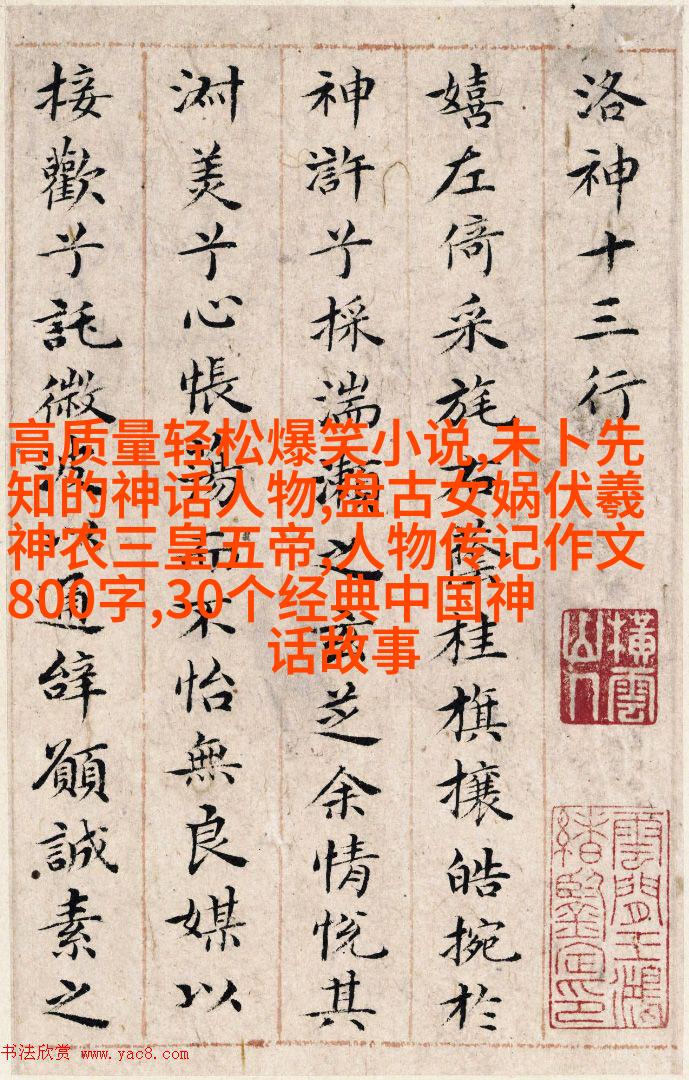 洛神十三行
嬉左倚采旄右蔭桂旗攘皓捥於
神許兮採湍瀨之玄芝余情悅其
淑美兮心悵蕩而不怡無良媒以
接歡兮託微波以通辭願誠素之
高质量轻松爆笑小说,未卜先
知的神话人物,盘古女娲伏羲
神农三皇五帝,人物传记作文
800字,30个经典中国神
话故事
橫雲
山人
雲間王鴻
緒鑒定印
书法欣赏 www.yac8.com